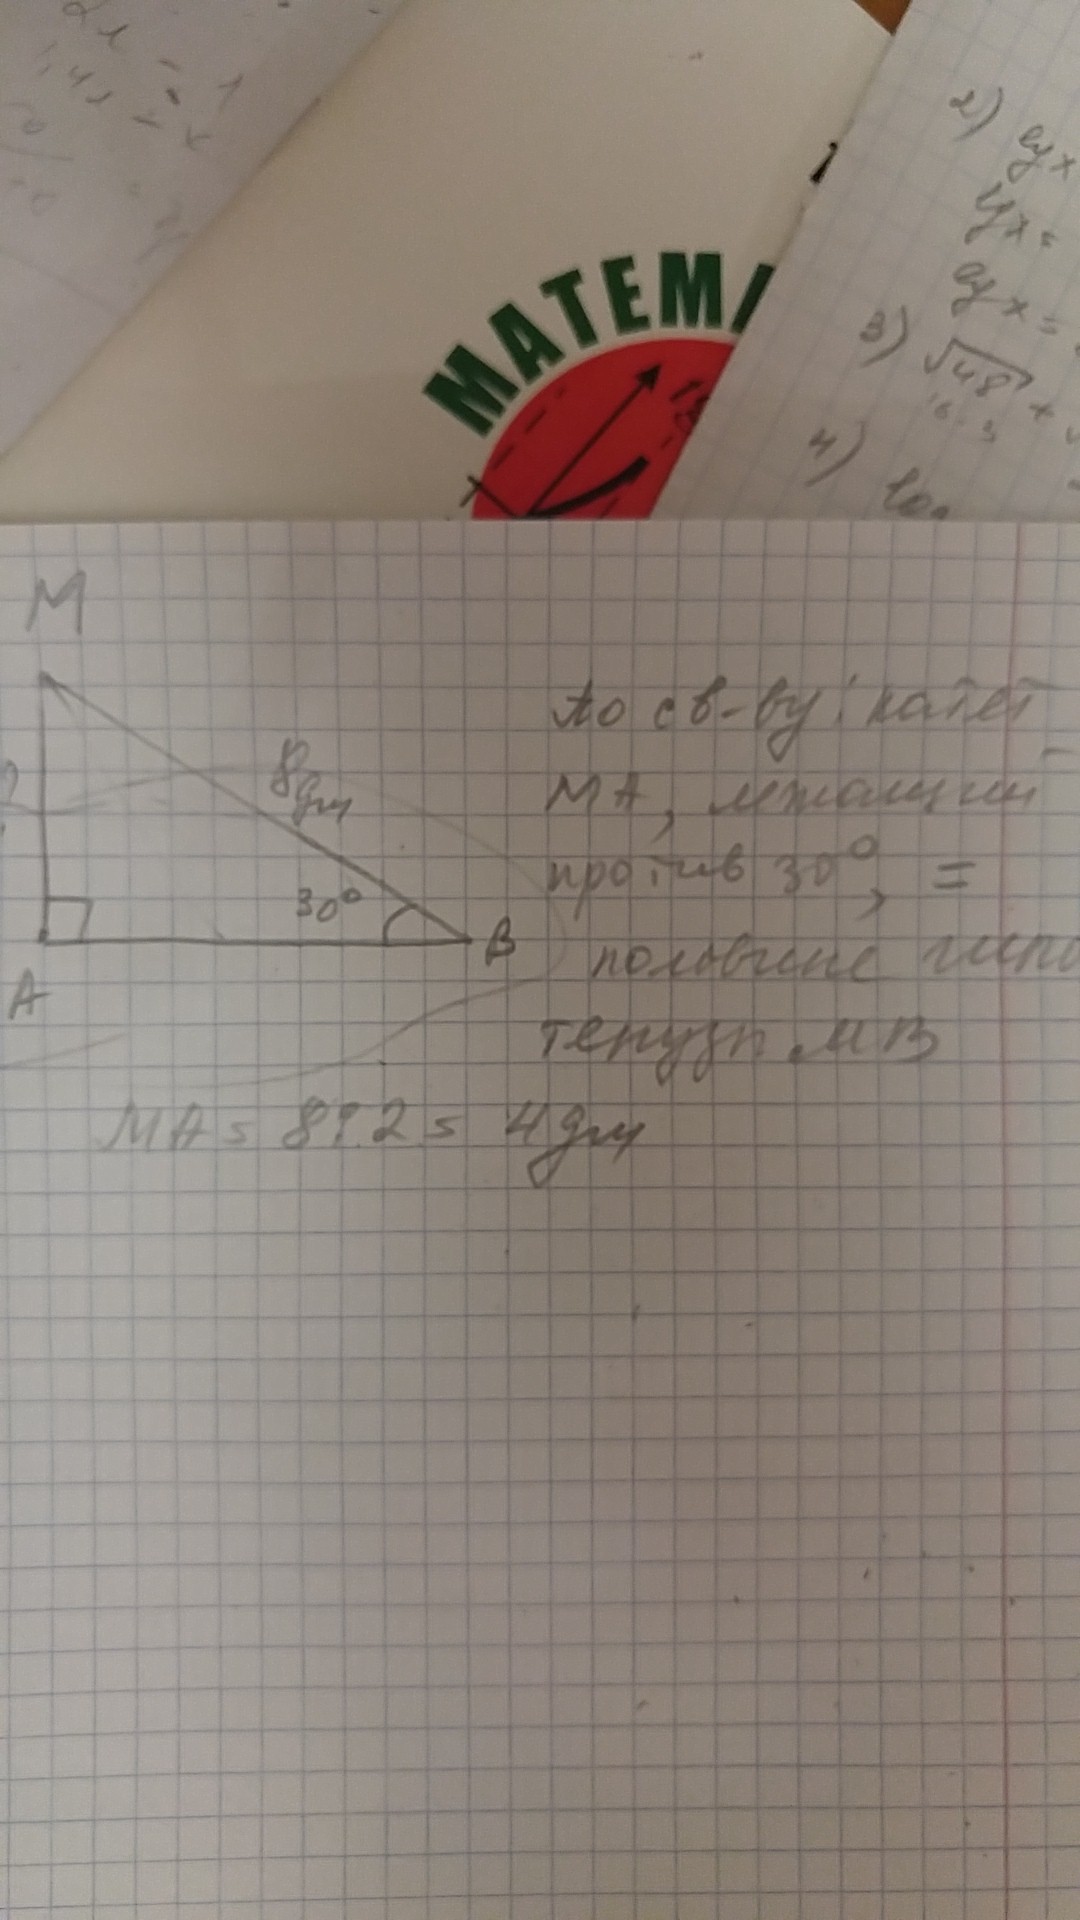 МАТЕМ
2)
3) √48 x
16 3
4)
М
8дм
30°
В
А
По св-ву: катет
МА, лежащий
против 30°, =
половине гипо
тенузы МВ
МА = 8:2 = 4дм